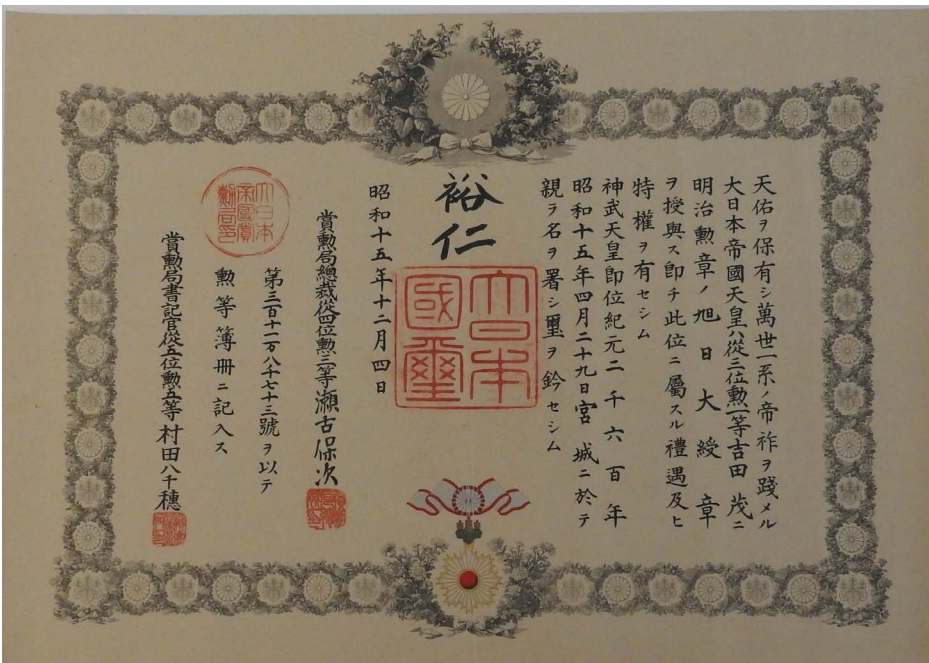 天佑ヲ保有シ萬世一系ノ帝祚ヲ踐メル
大日本帝國天皇ハ從三位勲一等吉田茂ニ
明治勲章ノ旭日大綬章
ヲ授與ス即チ此位ニ屬スル禮遇及ヒ
特權ヲ有セシム
神武天皇即位紀元二千六百年
昭和十五年四月二十九日宮城ニ於テ
親ラ名ヲ署シ璽ヲ鈐セシム
裕仁
大日本國璽
昭和十五年十二月四日
賞勲局總裁從四位勲三等瀬古保次
第三百十一万八千七十三號ヲ以テ
勲等簿冊ニ記入ス
大日本帝國賞勲局印
賞勲局書記官從五位勲五等村田八千穗